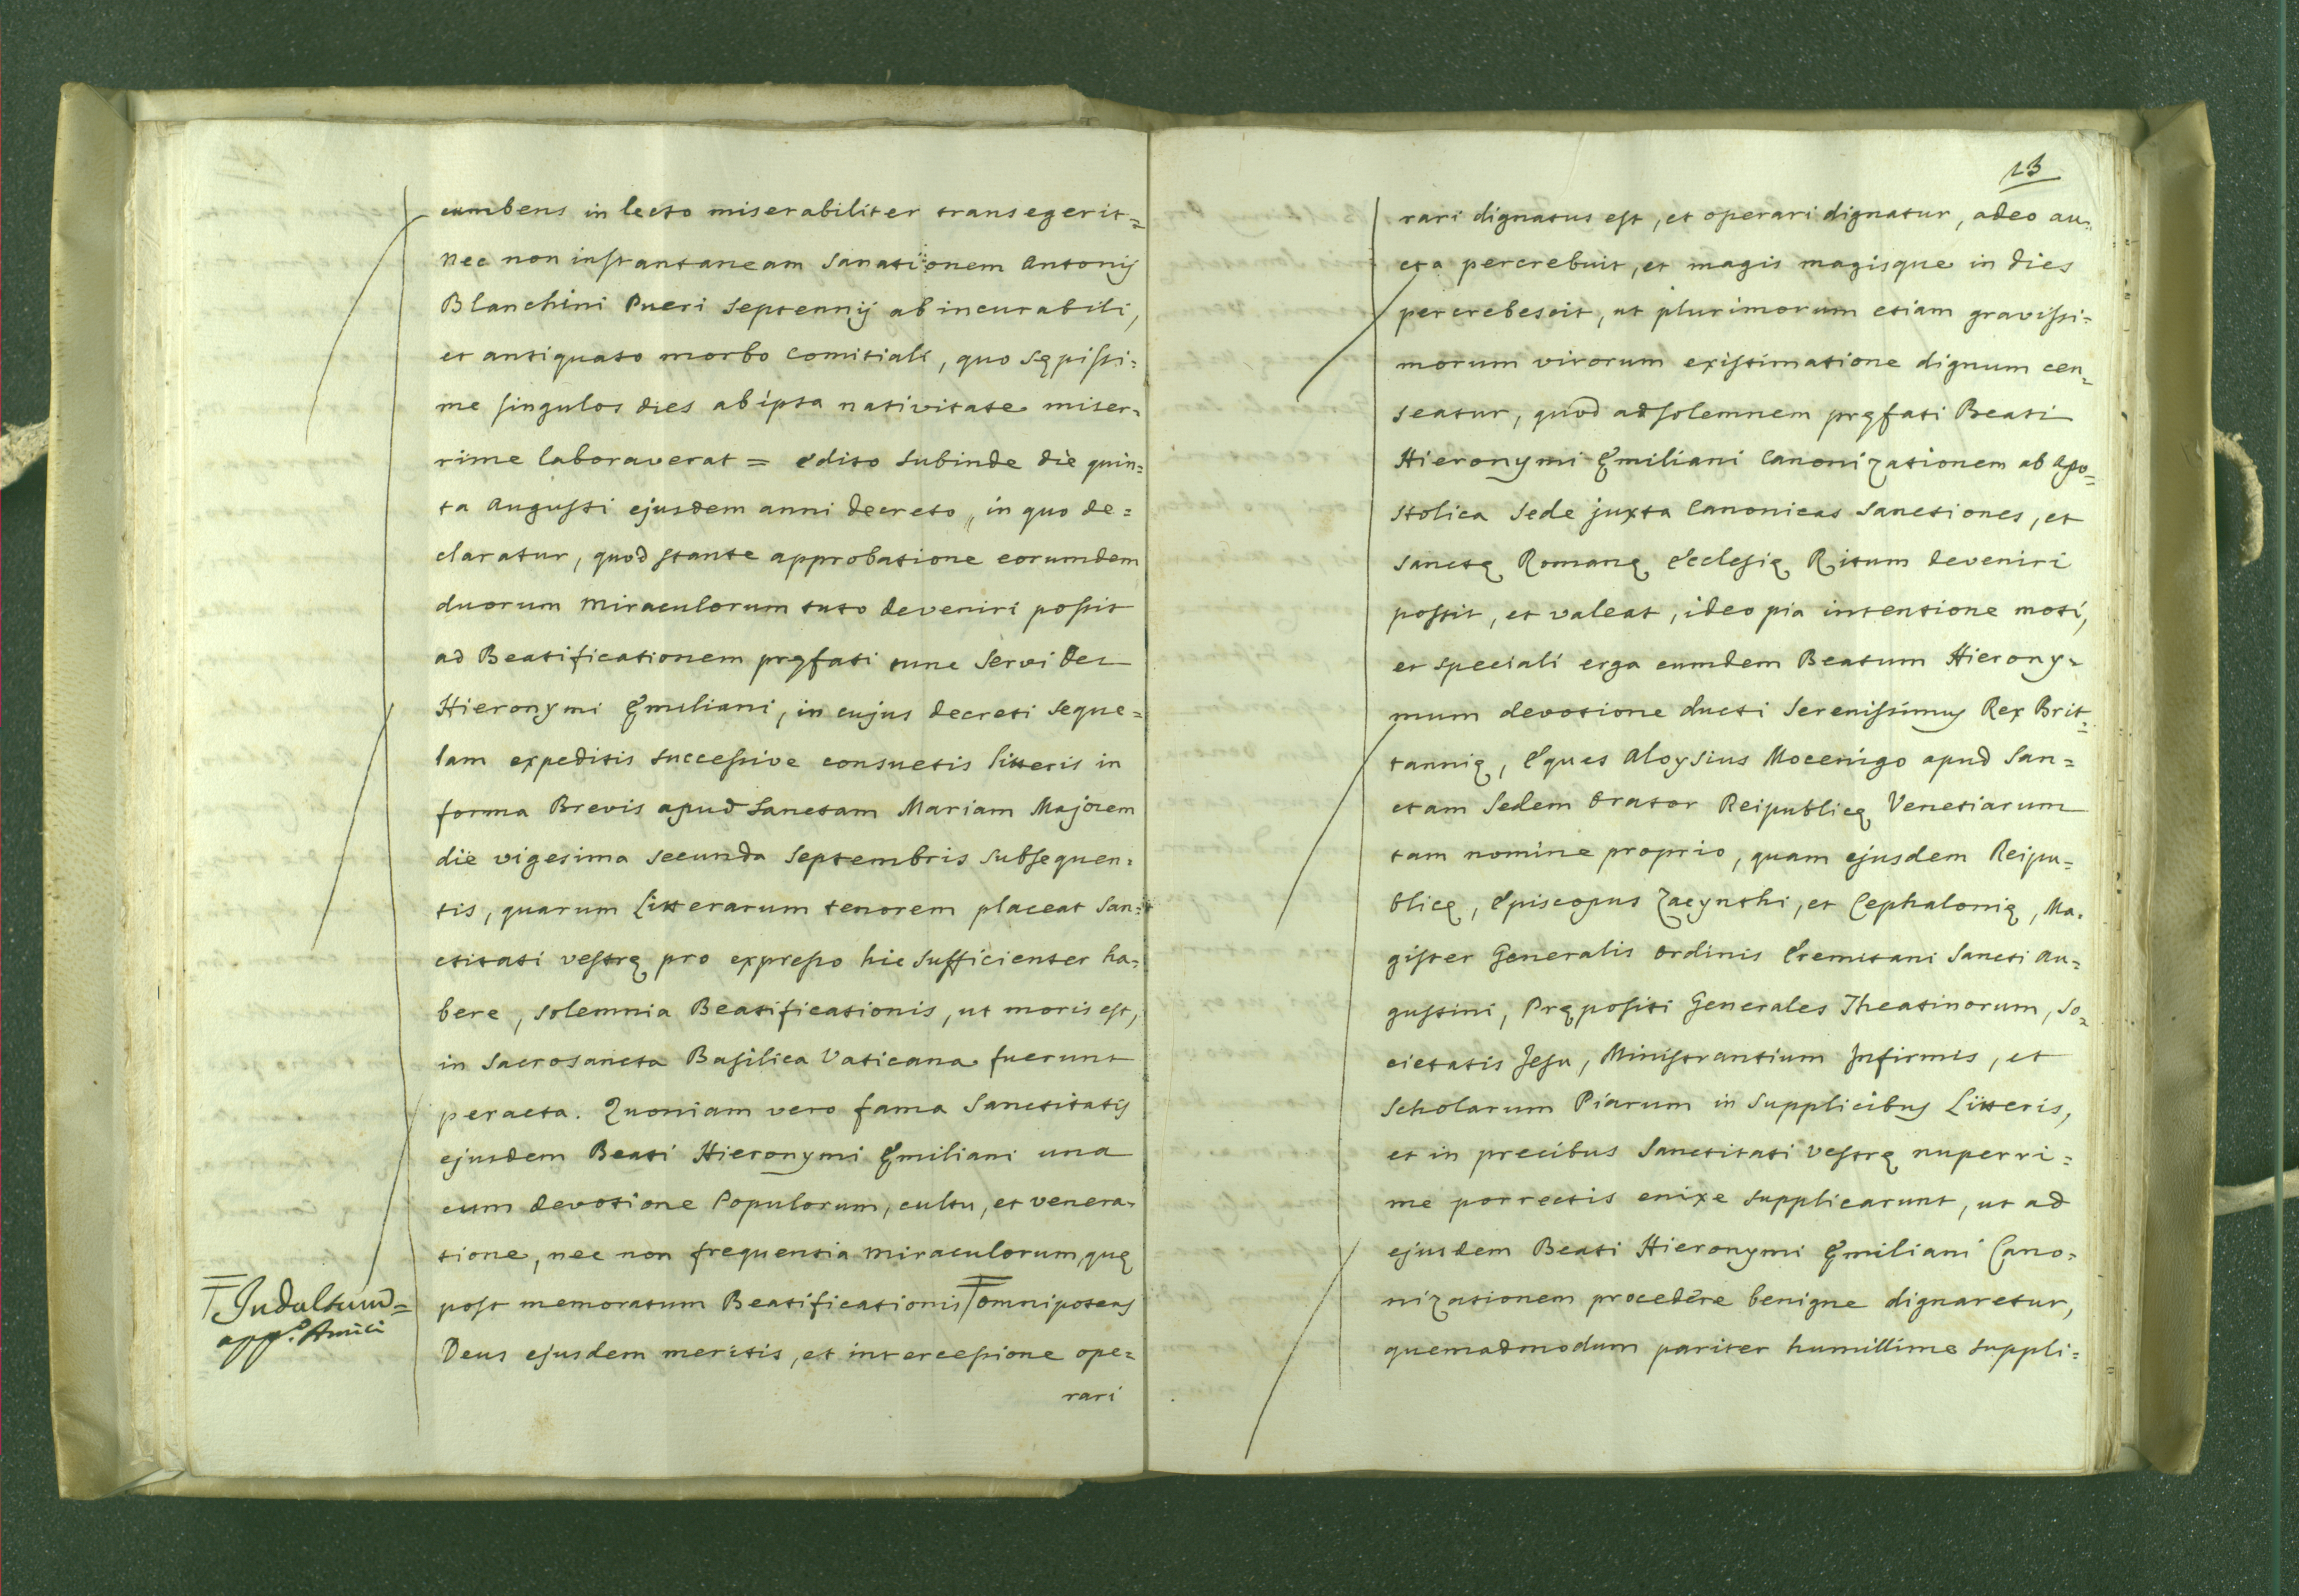 cumbens in lecto miserabiliter transegerit=
nec non instantaneam Sanationem Antonij
Blanchini Pueri Septennij ab incurabili,
et antiquato morbo Comitiali, quo sępissi=
me singulos dies ab ipsa nativitate miser=
rime laboraverat = edito subinde die quin=
ta Augusti ejusdem anni decreto, in quo de=
claratur, quod stante approbatione eorumdem
duorum Miraculorum tuto deveniri possit
ad Beatificationem pręfati tunc Servi Dei
Hieronymi Ęmiliani, in cujus decreti seque=
lam expeditis successive consuetis litteris in
forma Brevis apud Sanctam Mariam Majorem
die vigesima secunda Septembris subsequen=
tis, quarum Litterarum tenorem placeat San=
ctitati vestrę pro expresso hic sufficienter ha=
bere, solemnia Beatificationis, ut moris est,
in Sacrosancta Basilica Vaticana fuerunt
peracta. Quoniam vero fama Sanctitatis
ejusdem Beati Hieronymi Ęmiliani una
cum devotione Populorum, cultu, et venera=
tione, nec non frequentia miraculorum, quę
post memoratum Beatificationis omnipotens
Deus ejusdem meritis, et intercessione ope=
rari
Indultum=
app.º Amici
13
rari dignatus est, et operari dignatur, adeo au=
cta percrebuit, et magis magisque in dies
percrebescit, ut plurimorum etiam gravissi=
morum virorum existimatione dignum cen=
seatur, quod ad solemnem pręfati Beati
Hieronymi Ęmiliani Canonizationem ab Apo=
stolica Sede juxta Canonicas Sanctiones, et
Sanctę Romanę Ecclesię Ritum deveniri
possit, et valeat, ideo pia intentione moti,
et speciali erga eumdem Beatum Hierony=
mum devotione ducti Serenissimus Rex Brit=
tannię, Eques Aloysius Mocenigo apud San=
ctam Sedem Orator Reipublicę Venetiarum
tam nomine proprio, quam ejusdem Reipu=
blicę, Episcopus Zacynthi, et Cephalonię, Ma=
gister Generalis Ordinis Eremitani Sancti Au=
gustini, Prępositi Generales Theatinorum, So=
cietatis Jesu, Ministrantium Infirmis, et
Scholarum Piarum in supplicibus Litteris,
et in precibus Sanctitati Vestrę nuperri=
me porrectis enixe supplicarunt, ut ad
ejusdem Beati Hieronymi Ęmiliani Cano=
nizationem procedere benigne dignaretur,
quemadmodum pariter humillime suppli=